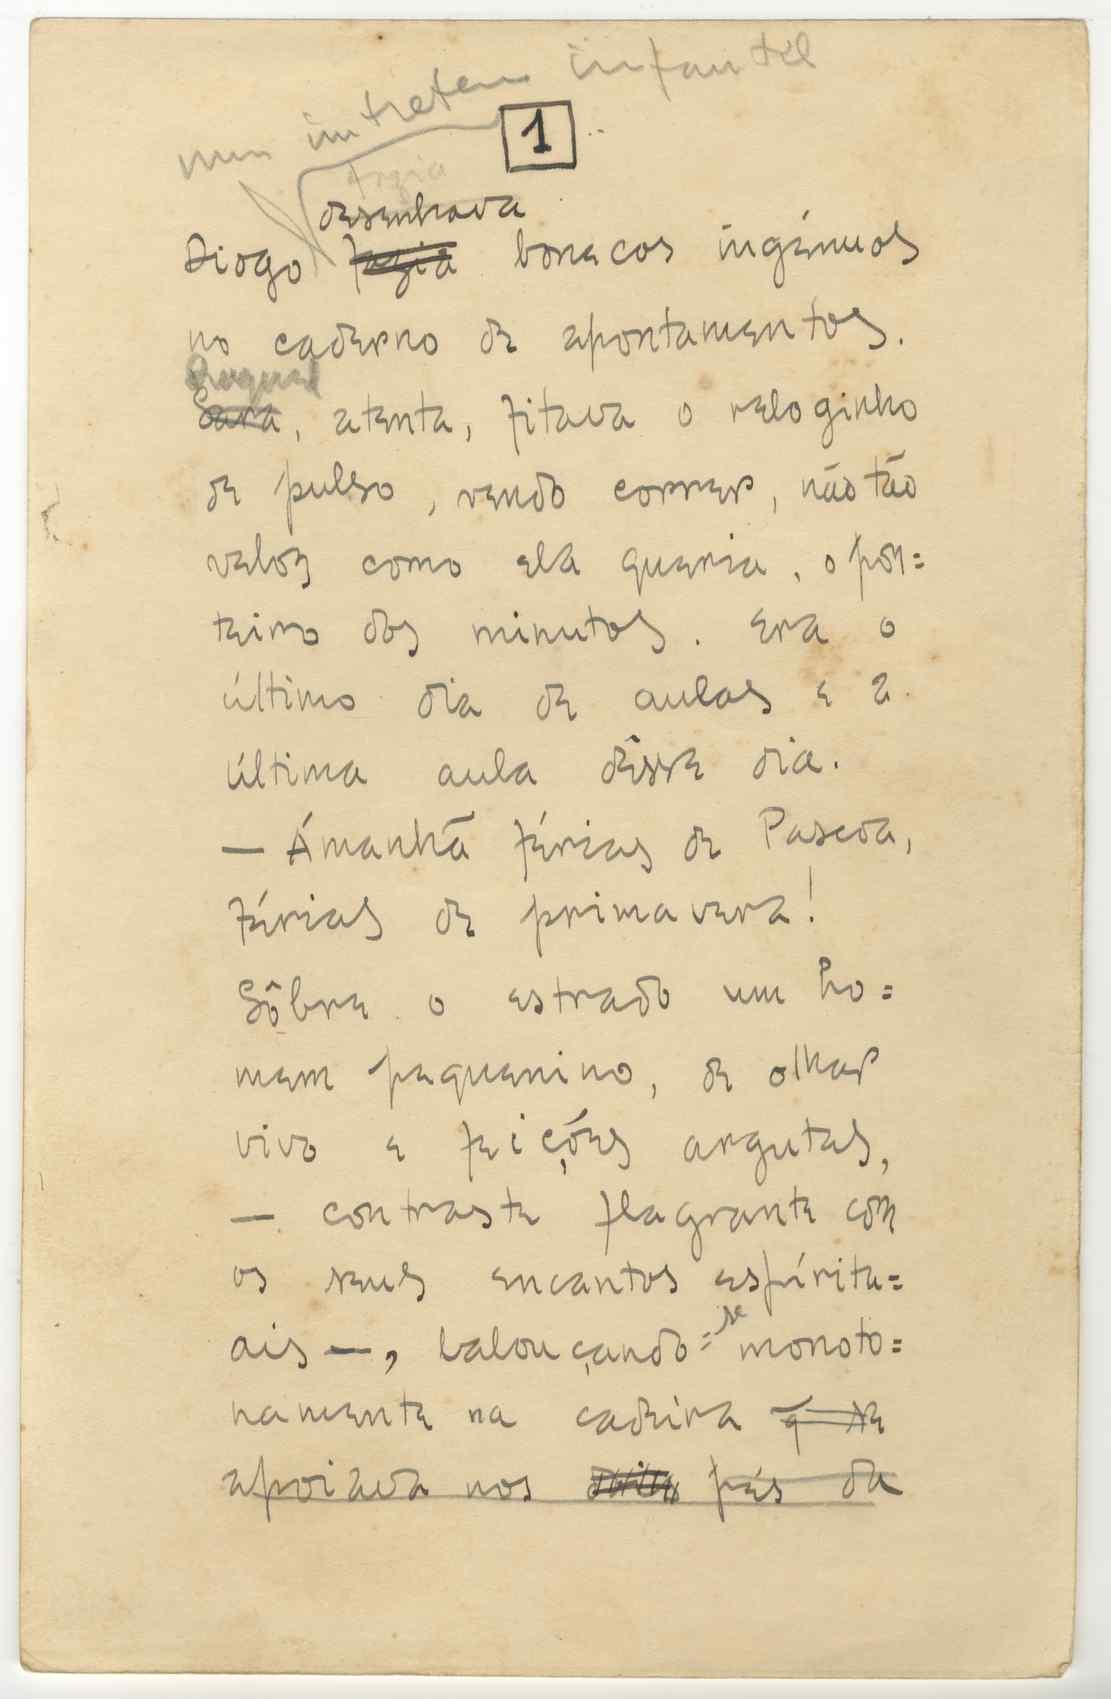 num intretem infantil
1
fazia
desenhava
Diogo fazia bonecos ingénuos
no caderno de apontamentos.
Raquel
Sara, atenta, fitava o reloginho
de pulso, vendo correr, não tão
veloz como ela queria, o pon=
teiro dos minutos. Era o
último dia de aulas e a
última aula dêsse dia.
— Ámanhã férias de Pascoa,
férias de primavera!
Sôbre o estrado um ho=
mem pequenino, de olhar
vivo e feições argutas,
— contraste flagrante com
os seus encantos espírita=
ais —, balouçando=se monoto=
namente na cadeira q se
apoiava nos pés da